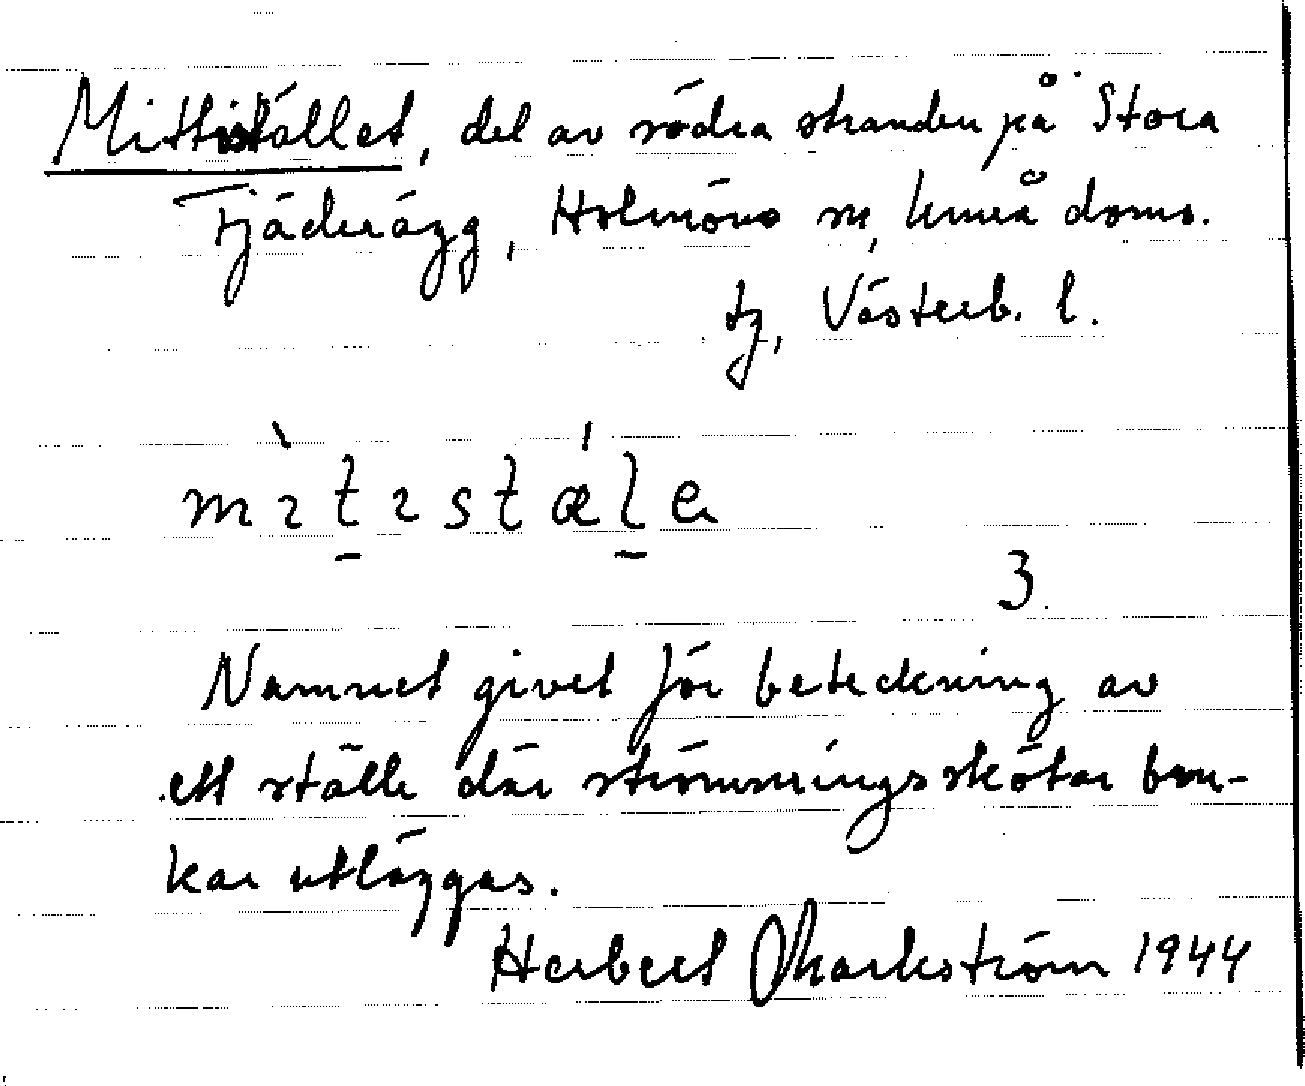 Mittistället, del av södra stranden på Stora
Fjäderägg, Holmöns sn, Umeå doms.
tg, Västerb. l.
mìtıstǽle
3.
Namnet givet för beteckning av
ett ställe där strömmingsskötar bru-
kar utläggas.
Herbert Markström 1944